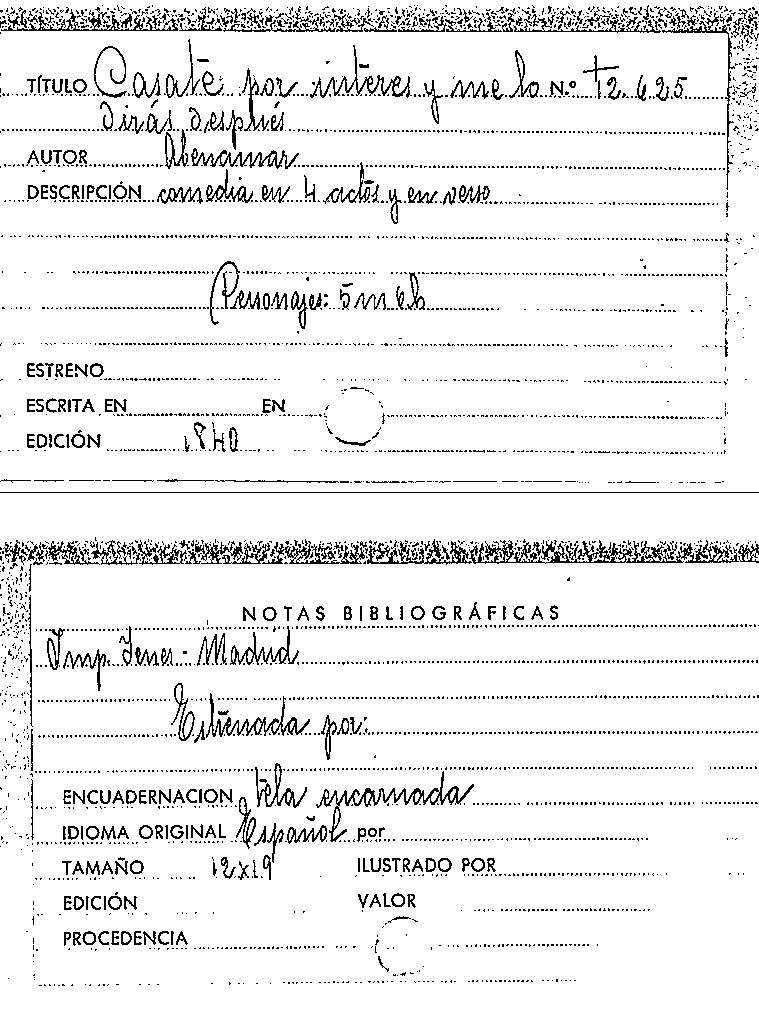 TÍTULO Casate por interes y me lo N.º T2.625
dirás después
AUTOR Abenamar
DESCRIPCIÓN comedia en 4 actos y en verso
Personajes: 5 m 6 h
ESTRENO
ESCRITA EN EN
EDICIÓN 1840
NOTAS BIBLIOGRÁFICAS
Imp. Yenes - Madrid
Estrenada por:
ENCUADERNACION Tela encarnada
IDIOMA ORIGINAL Español por
TAMAÑO 12x19 ILUSTRADO POR
EDICIÓN VALOR
PROCEDENCIA